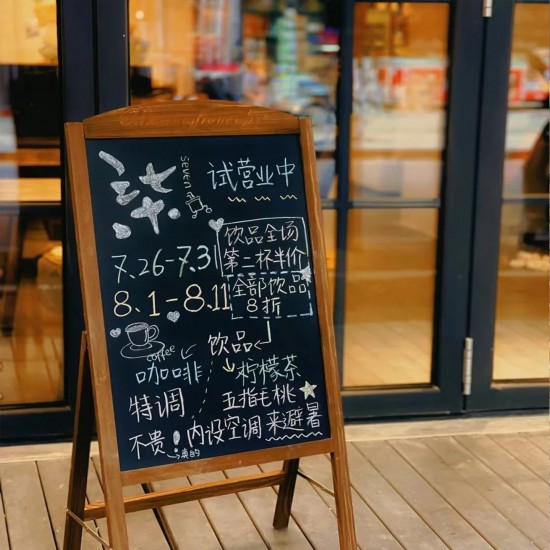 seven
试营业中
7.26-7.31
饮品全场
第二杯半价
8.1-8.11
全部饮品
8折
饮品
coffee
咖啡
柠檬茶
特调
五指毛桃
不贵!
真的
内设空调来避暑